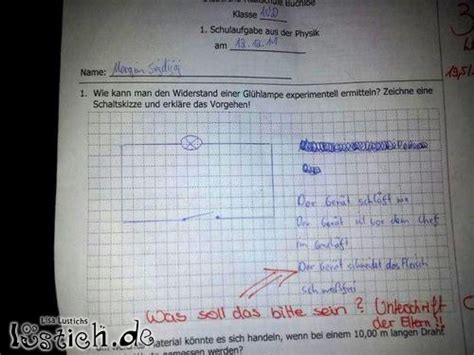 Staatliche Realschule Buchloe
Klasse 10D
1. Schulaufgabe aus der Physik
am 13.12.11
Name: Morgan
19,5/
1. Wie kann man den Widerstand einer Glühlampe experimentell ermitteln? Zeichne eine
Schaltskizze und erkläre das Vorgehen!
Der Gerät schläft nie
Der Gerät ist vor dem Chef
im Geschäft
Der Gerät schneidet das Fleisch
schweißfrei
Was soll das bitte sein? Unterschrift
der Eltern!!
Lisa Lustichs
lustich.de
material könnte es sich handeln, wenn bei einem 10,00 m langen Draht
gemessen werden?